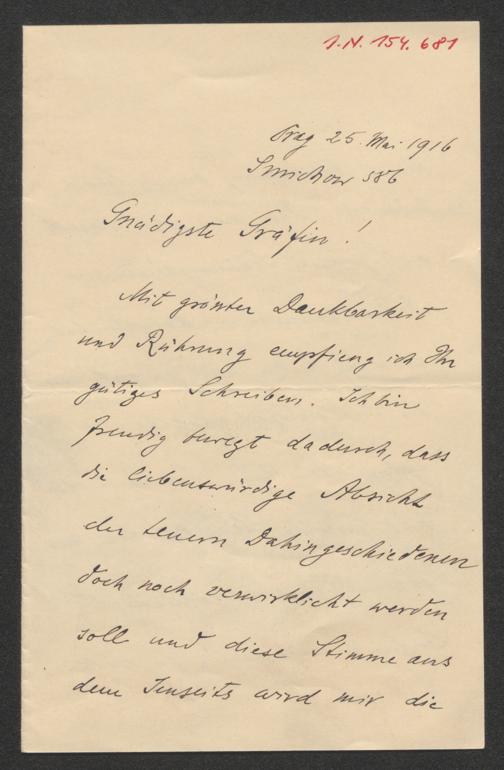 I.N. 154.681
Prag 25. Mai 1916
Smichow 586
Gnädigste Gräfin!
Mit grösster Dankbarkeit
und Rührung empfieng ich Ihr
gütiges Schreiben. Ich bin
freudig bewegt dadurch, dass
die liebenswürdige Absicht
der teuern Dahingeschiedenen
doch noch verwirklicht werden
soll und diese Stimme aus
dem Jenseits wird mir die